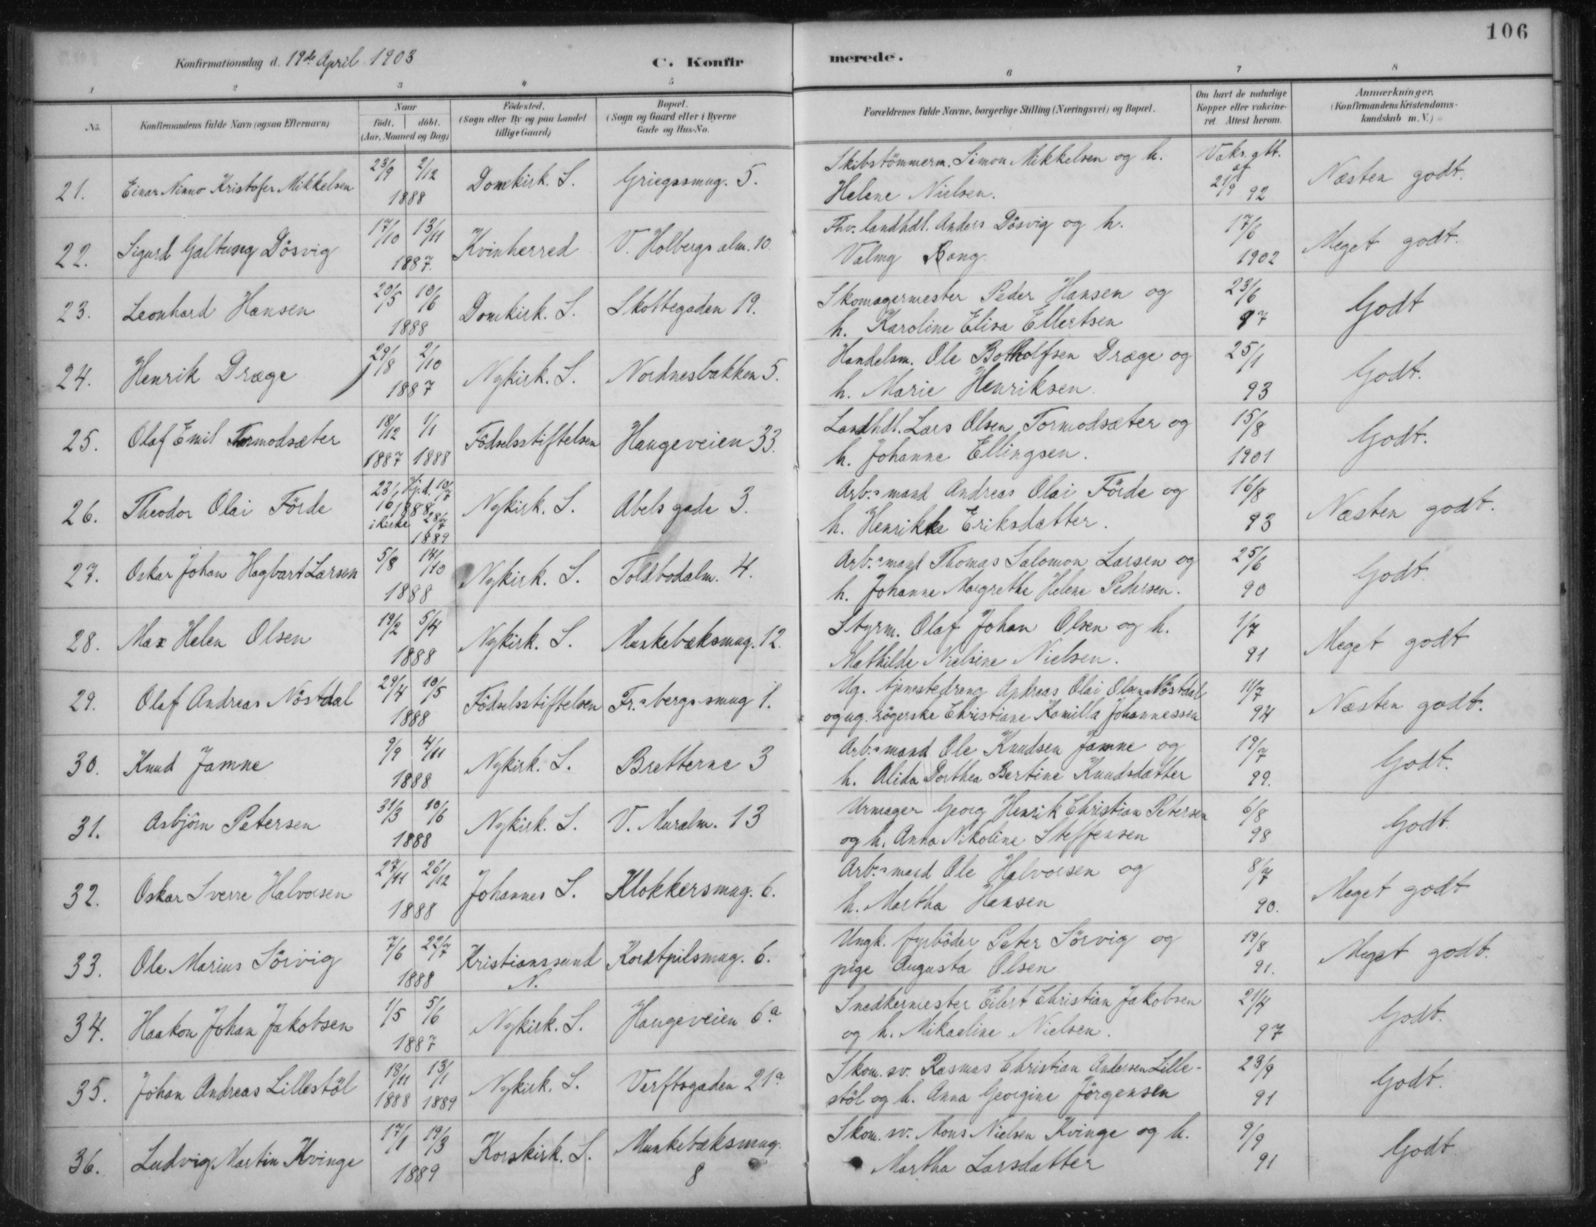 106
Konfirmationsdag d. 19de April 1903
C. Konfirmerede.
1 2 3 4 5 6 7 8
No. Konfirmandens fulde Navn (ogsaa Efternavn) Naar født. døbt. (Aar, Maaned og Dag) Fødested. (Sogn eller By og paa Landet tillige Gaard) Bopæl. (Sogn og Gaard eller i Byerne Gade og Hus-No. Forældrenes fulde Navne, borgerlige Stilling (Næringsvei) og Bopæl. Om havt de naturlige Kopper eller vakcineret. Attest herom. Anmærkninger. (Konfirmandens Kristendomskundskab m. V.)
21. Einar Ninno Kristofer Mikkelsen 23/9 2/12 1888 Domkirk. S. Griegssmug. 5. Skibstömmerm. Simon Mikkelsen og h. Helene Nielsen. Vaks. att. af 21/9 92 Næsten godt.
22. Sigurd Galtung Dösvig 17/10 13/11 1887. Kvinherred V. Holbergs alm. 10 Fhv. landhdl. Anders Dösvig og h. Valmy Rong 17/6 1902 Meget godt.
23. Leonhard Hansen 20/5 10/6 1888 Domkirk. S. Skottegaden 19. Skomagermester Peder Hansen og h. Karoline Elisa Ellertsen 23/6 97 Godt
24. Henrik Dræge 29/8 2/10 1887 Nykirk. S. Nordnesbakken 5. Handelsm. Ole Botholfsen Dræge og h. Marie Henriksen 25/1 93 Godt.
25. Olaf Emil Tormodsæter 18/12 1/1 1887 1888 Födselsstiftelsen Haugeveien 33. Landhdl. Lars Olsen Tormodsæter og h. Johanne Ellingsen. 15/8 1901 Godt.
26. Theodor Olai Förde 23/6 hjd. 10/7 1888 i kirke 28/7 1889 Nykirk. S. Abels gade 3. Arb.smand Andreas Olai Förde og h. Henrikke Eriksdatter. 16/8 93 Næsten godt.
27. Oskar Johan Hagbart Larsen 5/8 14/10 1888 Nykirk. S. Toldbodalm. 4. Arb.smand Thomas Salomon Larsen og h. Johanne Margrethe Helene Pedersen. 25/6 90 Godt.
28. Max Helen Olsen 19/2 5/4 1888 Nykirk. S. Munkebæksmug. 12. Styrm. Olaf Johan Olsen og h. Mathilde Nielsine Nielsen. 1/7 91 Meget godt
29. Olaf Andreas Nöstdal 29/4 10/5 1888 Födselsstiftelsen Fr.sbergs smug 1. Ug. tjenestedreng Andreas Olai Olsen Nöstdal og ug. sögerske Christiane Kamilla Johannessen 11/7 94 Næsten godt.
30. Knud Jamne 9/9 4/11 1888 Nykirk. S. Bretterne 3 Arb.smand Ole Knudsen Jamne og h. Alida Dorthea Bertine Knudsdatter 19/7 99. Godt.
31. Asbjörn Petersen 31/3 10/6 1888 Nykirk. S. V. Muralm. 13 Urmager Georg Henrik Christian Petersen og h. Anna Nikoline Steffensen 6/8 98 Godt
32. Oskar Sverre Halvorsen 27/11 26/12 1888 Johannes S. Klokkersmug. 6. Arb.smand Ole Halvorsen og h. Martha Hansen 8/7 90. Meget godt
33. Ole Marius Sörvig 7/6 22/7 1888 Kristianssund N. Korstpilsmug. 6. Ungk. fyrböder Peter Sörvig og pige Augusta Olsen 19/8 91. Meget godt.
34. Haakon Johan Jakobsen 1/5 5/6 1887 Nykirk. S. Haugeveien 6a Snedkermester Eilert Christian Jakobsen og h. Mikaeline Nielsen. 21/4 97 Godt.
35. Johan Andreas Lillestöl 18/11 13/1 1888 1889 Nykirk. S. Verftsgaden 21a Skom. sv. Rasmus Christian Andersen Lillestöl og h. Anna Georgine Jörgensen 23/9 91 Godt.
36. Ludvig Martin Kvinge 17/1 19/3 1889 Korskirk. S. Munkebæksmug. 8 Skom. sv. Mons Nielsen Kvinge og h. Martha Larsdatter 9/9 91 Godt.